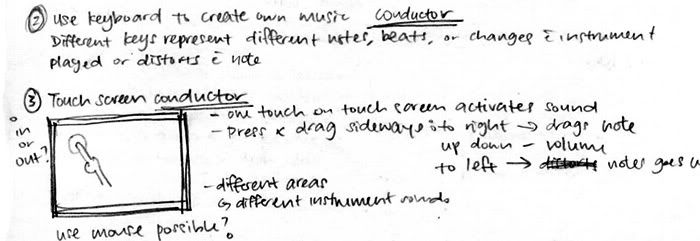 ② Use keyboard to create own music conductor
Different keys represent different notes, beats, or changes c̄ instrument
played or distorts c̄ note
③ Touch screen conductor
- one touch on touch screen activates sound
- press & drag sideways to right → drags note
up down - volume
to left → distorts notes goes u
in
or
out?
- different areas
↳ different instrument sounds
use mouse possible?